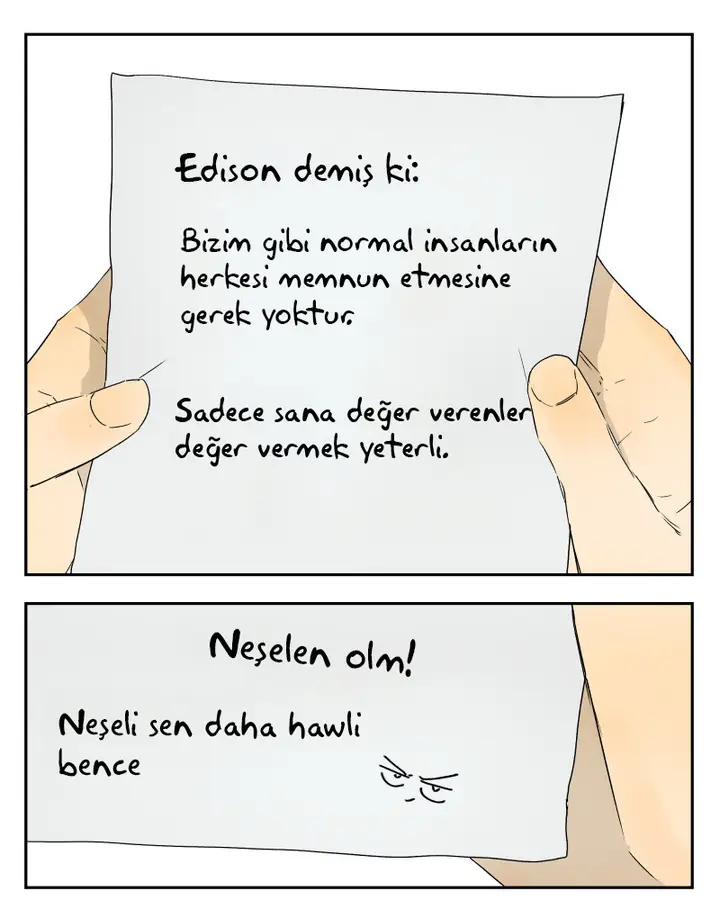 Edison demiş ki:
Bizim gibi normal insanların
herkesi memnun etmesine
gerek yoktur.
Sadece sana değer verenler
değer vermek yeterli.
Neşelen olm!
Neşeli sen daha hawli
bence